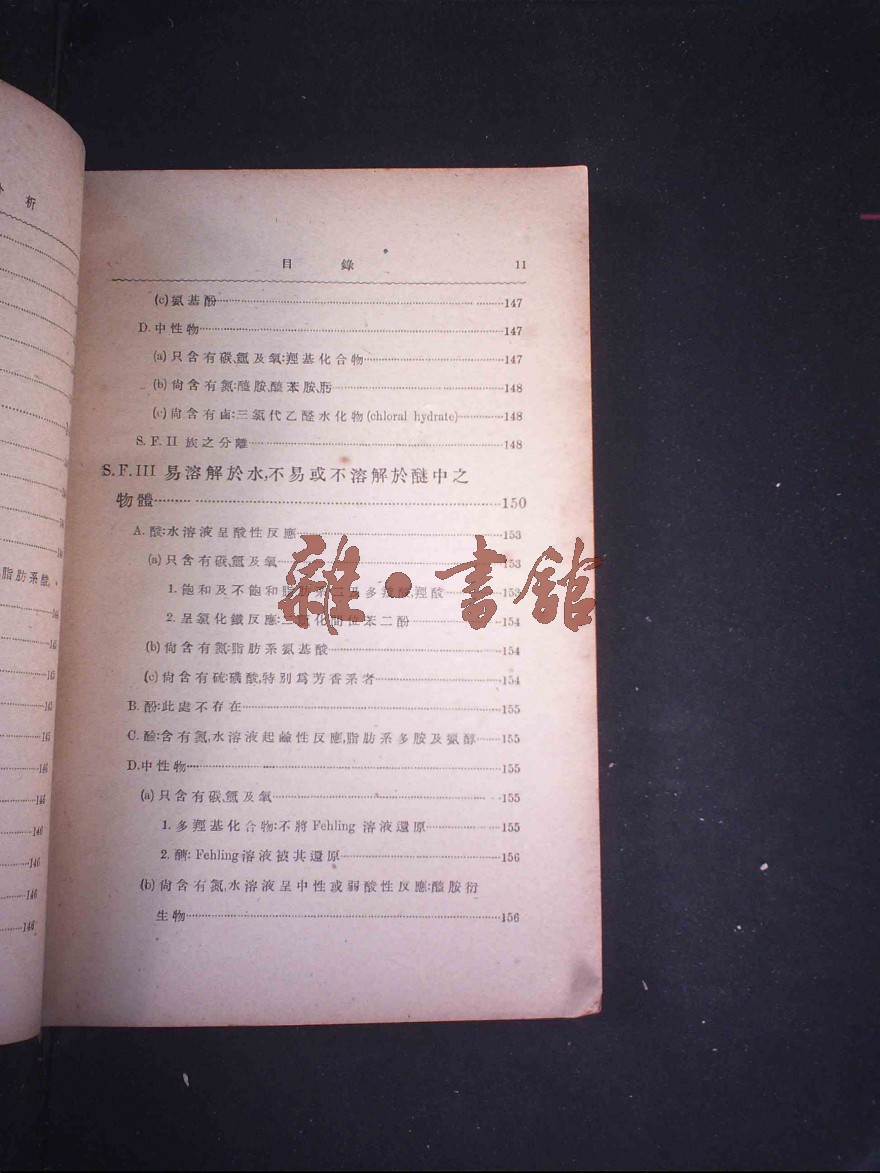 分析
目錄 11
(c)氨基酚 147
D.中性物 147
(a)只含有碳,氫及氧:羥基化合物 147
(b)尙含有氮:醯胺,醯苯胺,肟 148
(c)尙含有鹵:三氯代乙醛水化物(chloral hydrate) 148
S.F.II 族之分離 148
S.F.III 易溶解於水,不易或不溶解於醚中之
物體 150
A.酸:水溶液呈酸性反應 153
(a)只含有碳,氫及氧 153
1.飽和及不飽和脂肪系二及多羧酸,羥酸 153
2.呈氯化鐵反應: 間位苯二酚 154
(b)尙含有氮:脂肪系氨基酸 154
(c)尙含有硫:磺酸,特別爲芳香系者 154
B.酚:此處不存在 155
C. 含有氮,水溶液起鹼性反應,脂肪系多胺及氨醇 155
D.中性物 155
(a)只含有碳,氫及氧 155
1.多羥基化合物:不將Fehling溶液還原 155
2.醣:Fehling溶液被其還原 156
(b)尙含有氮,水溶液呈中性或弱酸性反應:醯胺衍
生物 156
脂肪系醯,
雜·書館